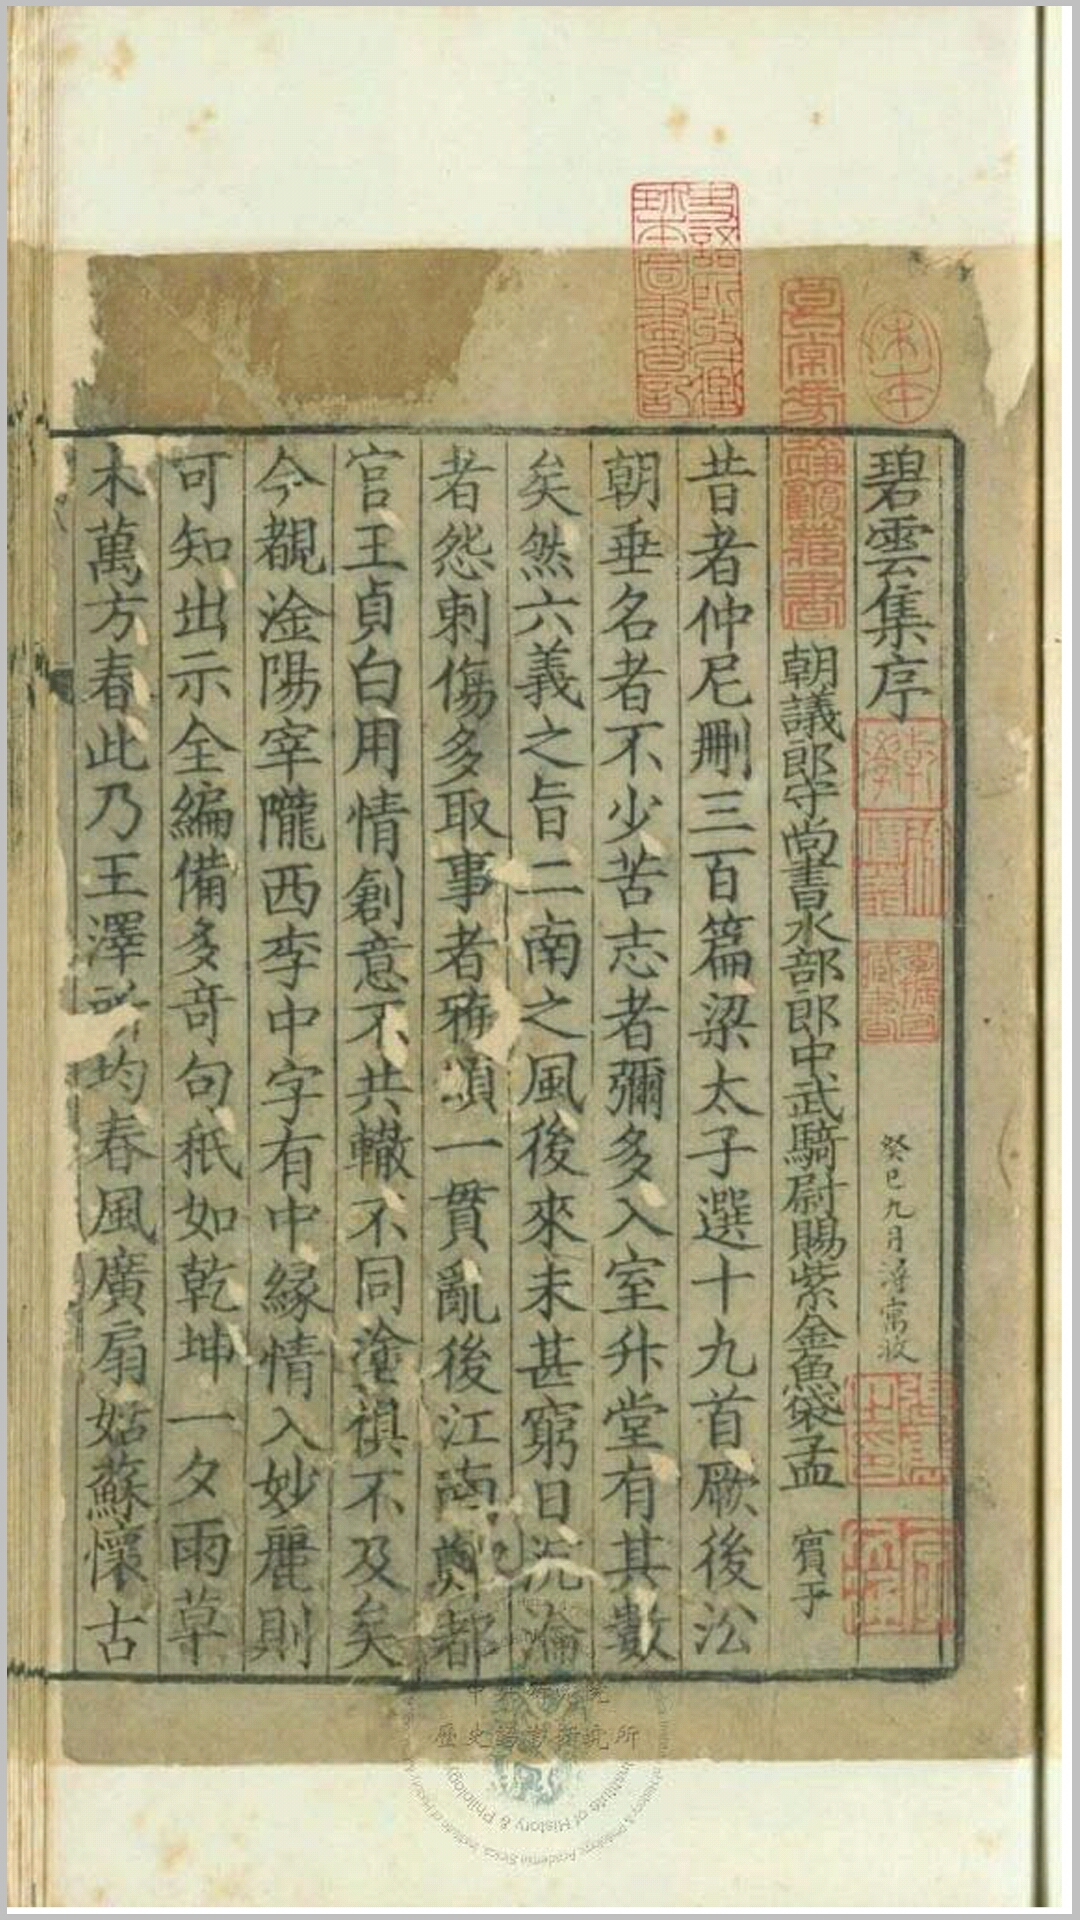 碧雲集序
癸巳九月 寒 收
朝議郎守尚書水部郎中武騎尉賜紫金魚袋孟 賓于
昔者仲尼刪三百篇梁太子選十九首厥後㳂
朝垂名者不少苦志者彌多入室升堂有其數
矣然六義之旨二南之風後來未甚窮日沉淪
者怨刺傷多取事者雅頌一貫亂後江南鄭都
官王貞白用情創意不共轍不同塗俱不及矣
今覩淦陽宰隴西李中字有中緣情入妙麗則
可知出示全編備多竒句秖如乾坤一夕雨草
木萬方春此乃王澤所均春風廣扇姑蘇懷古
史語所收藏珍本圖書記
休寧
莒棠馮諫顧藏書
李振宜藏書
中央研究院
歷史語言研究所
Institute of History & Philology